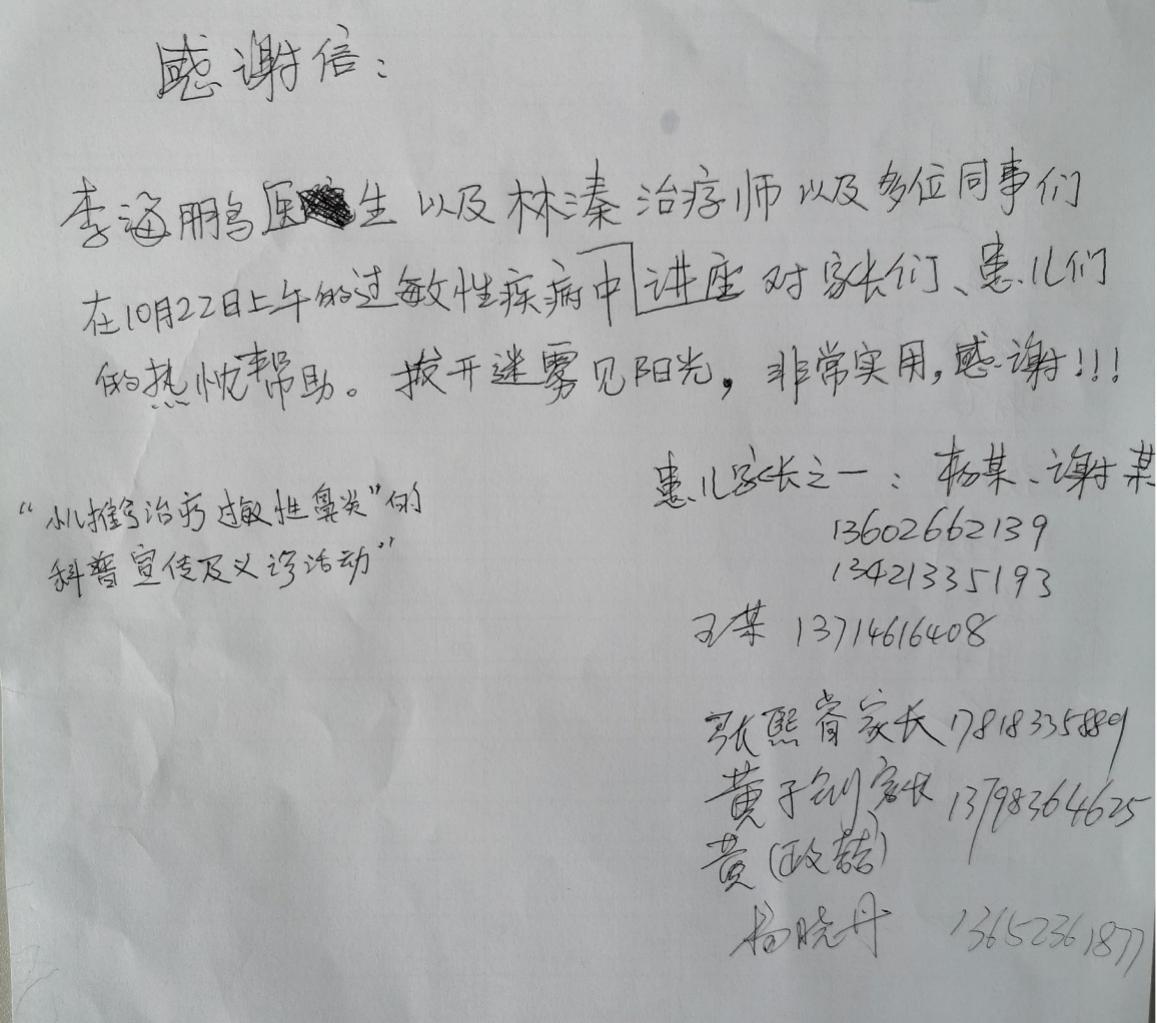 感谢信：
李海鹏医生以及林溱治疗师以及多位同事们
在10月22日上午的过敏性疾病中讲座对家长们、患儿们
的热忱帮助。拨开迷雾见阳光，非常实用，感谢！！！
患儿家长之一：杨某、谢某
“小儿推拿治疗过敏性鼻炎”的
13602662139
科普宣传及义诊活动”
13421335193
王某 13714616408
张熙 家长 17818335889
黄子钊家长 13798364625
黄(政喆)
杨晓丹 13652361877